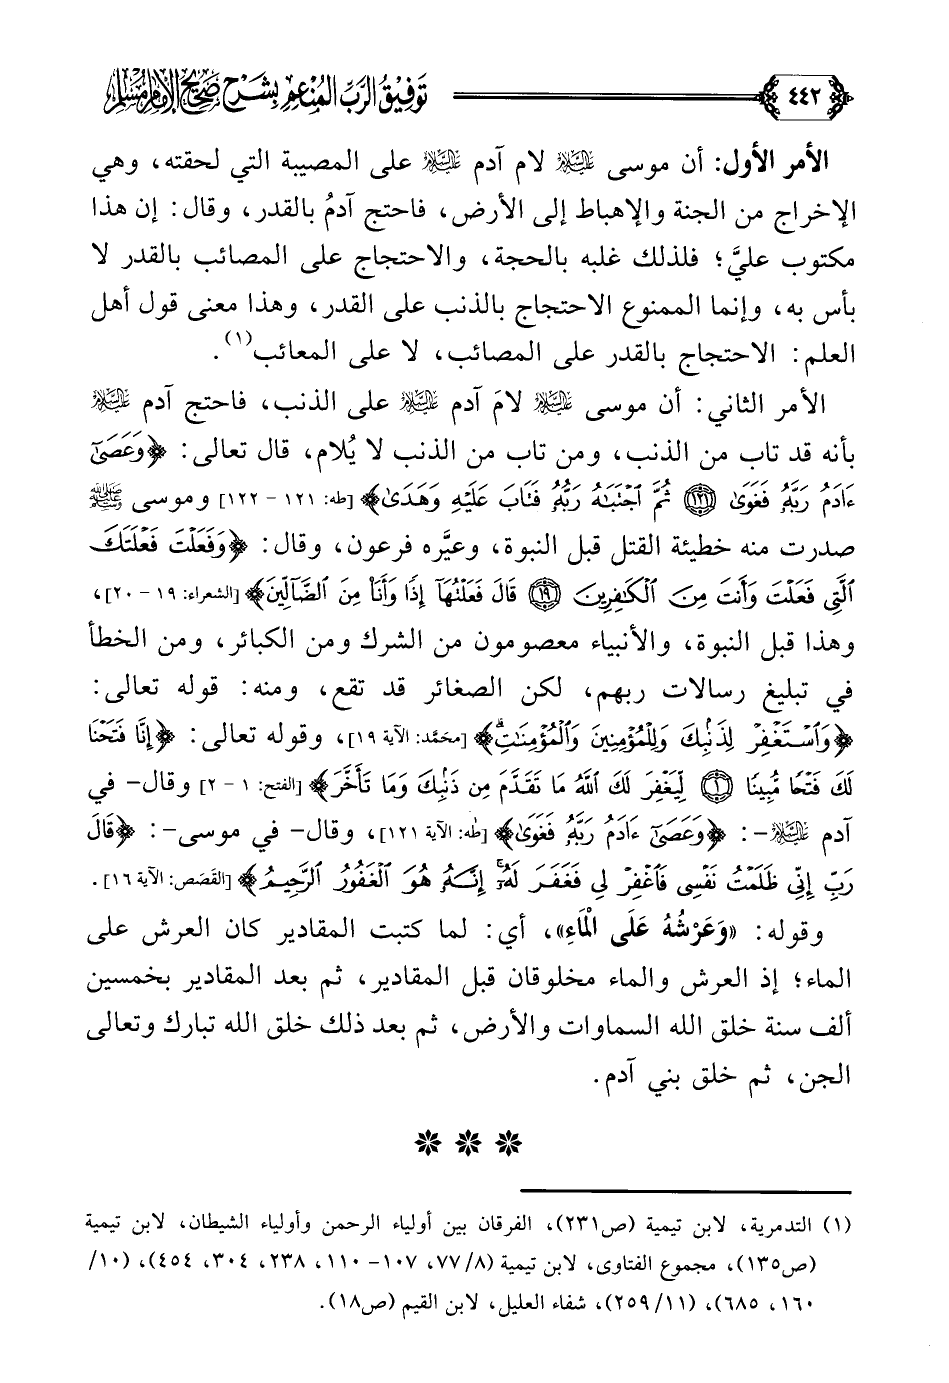 ٤٤٢ توفيق الرب المنعم بشرح صحيح الإمام مسلم
الأمر الأول: أن موسى عليه السلام لام آدم عليه السلام على المصيبة التي لحقته، وهي
الإخراج من الجنة والإهباط إلى الأرض، فاحتج آدمُ بالقدر، وقال: إن هذا
مكتوب عليَّ؛ فلذلك غلبه بالحجة، والاحتجاج على المصائب بالقدر لا
بأس به، وإنما الممنوع الاحتجاج بالذنب على القدر، وهذا معنى قول أهل
العلم: الاحتجاج بالقدر على المصائب، لا على المعائب(١).
الأمر الثاني: أن موسى عليه السلام لامَ آدم عليه السلام على الذنب، فاحتج آدم عليه السلام
بأنه قد تاب من الذنب، ومن تاب من الذنب لا يُلام، قال تعالى: ﴿وَعَصَىٰٓ
ءَادَمُ رَبَّهُۥ فَغَوَىٰ ١٢١ ثُمَّ ٱجْتَبَٰهُ رَبُّهُۥ فَتَابَ عَلَيْهِ وَهَدَىٰ﴾ [طه: ١٢١ - ١٢٢] وموسى ﷺ
صدرت منه خطيئة القتل قبل النبوة، وعيَّره فرعون، وقال: ﴿وَفَعَلْتَ فَعْلَتَكَ
ٱلَّتِي فَعَلْتَ وَأَنتَ مِنَ ٱلْكَٰفِرِينَ ١٩ قَالَ فَعَلْتُهَآ إِذًا وَأَنَا۠ مِنَ ٱلضَّآلِّينَ﴾ [الشعراء: ١٩ - ٢٠]،
وهذا قبل النبوة، والأنبياء معصومون من الشرك ومن الكبائر، ومن الخطأ
في تبليغ رسالات ربهم، لكن الصغائر قد تقع، ومنه: قوله تعالى:
﴿وَٱسْتَغْفِرْ لِذَنۢبِكَ وَلِلْمُؤْمِنِينَ وَٱلْمُؤْمِنَٰتِۗ﴾ [محَمَّد: الآية ١٩]، وقوله تعالى: ﴿إِنَّا فَتَحْنَا
لَكَ فَتْحًا مُّبِينًا ١ لِّيَغْفِرَ لَكَ ٱللَّهُ مَا تَقَدَّمَ مِن ذَنۢبِكَ وَمَا تَأَخَّرَ﴾ [الفتح: ١ - ٢] وقال- في
آدم عليه السلام -: ﴿وَعَصَىٰٓ ءَادَمُ رَبَّهُۥ فَغَوَىٰ﴾ [طه: الآية ١٢١]، وقال- في موسى-: ﴿قَالَ
رَبِّ إِنِّي ظَلَمْتُ نَفْسِي فَٱغْفِرْ لِي فَغَفَرَ لَهُۥٓۚ إِنَّهُۥ هُوَ ٱلْغَفُورُ ٱلرَّحِيمُ﴾ [القَصَص: الآية ١٦].
وقوله: «وَعَرْشُهُ عَلَى الْمَاءِ»، أي: لما كتبت المقادير كان العرش على
الماء؛ إذ العرش والماء مخلوقان قبل المقادير، ثم بعد المقادير بخمسين
ألف سنة خلق الله السماوات والأرض، ثم بعد ذلك خلق الله تبارك وتعالى
الجن، ثم خلق بني آدم.
(١) التدمرية، لابن تيمية (ص٢٣١)، الفرقان بين أولياء الرحمن وأولياء الشيطان، لابن تيمية
(ص١٣٥)، مجموع الفتاوى، لابن تيمية (٨/ ٧٧، ١٠٧- ١١٠، ٢٣٨، ٣٠٤، ٤٥٤)، (١٠/
١٦٠، ٦٨٥)، (١١/ ٢٥٩)، شفاء العليل، لابن القيم (ص١٨).